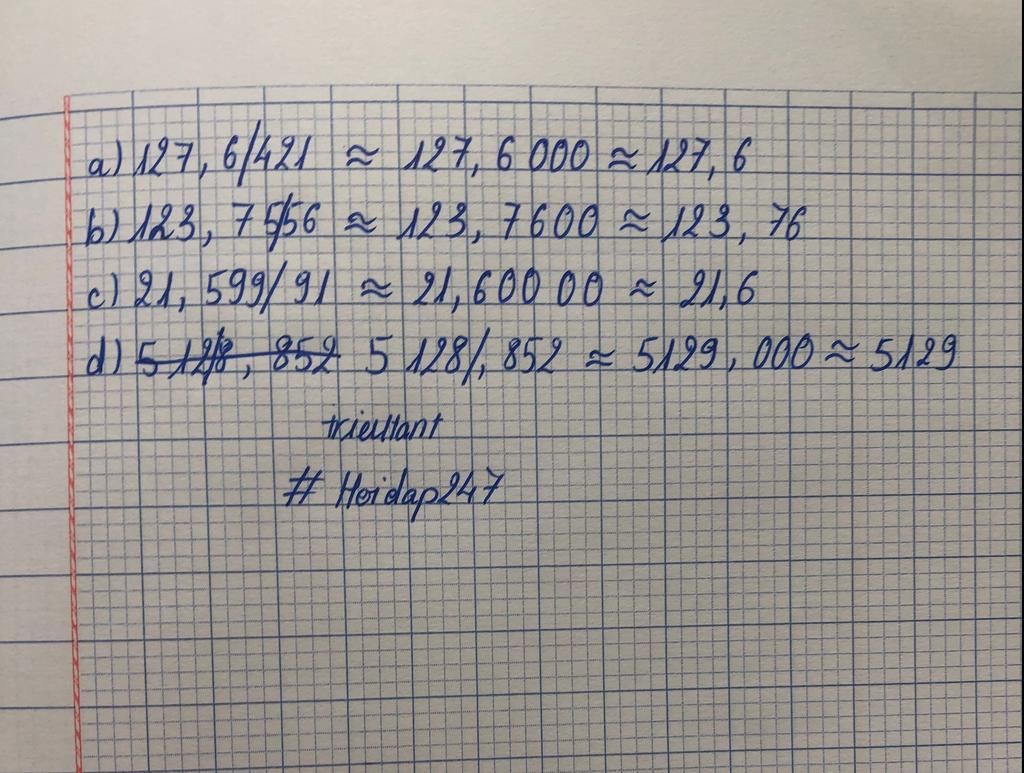 a) 127, 6/421 ≈ 127, 6 000 ≈ 127, 6
b) 123, 75/56 ≈ 123, 7600 ≈ 123, 76
c) 21, 599/91 ≈ 21,60000 ≈ 21,6
d) 5 12/8, 852 5 128/, 852 ≈ 5129, 000 ≈ 5129
# Hoidap247